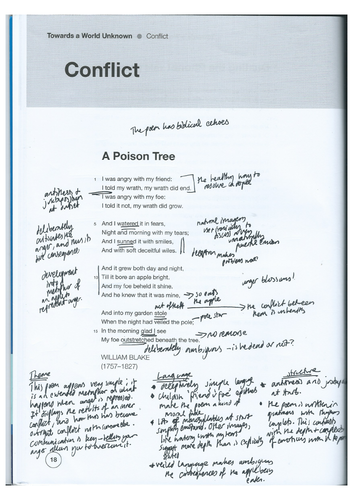 Towards a World Unknown Conflict
Conflict
The poem has biblical echoes
A Poison Tree
1 I was angry with my friend:
I told my wrath, my wrath did end.
I was angry with my foe:
I told it not, my wrath did grow.
the healthy way to
resolve
antithesis +
juxtaposition
at
5 And I watered it in fears,
Night and morning with my tears;
And I sunned it with smiles,
And with soft deceitful wiles.
natural imagery
deliberately
anger, and thus its
consequences
And it grew both day and night,
10 Till it bore an apple bright,
And my foe beheld it shine,
And he knew that it was mine,
development
metaphor of
an apple to
represent anger.
anger blossoms!
so eats
the apple
act of theft
the conflict between
them is
And into my garden stole
When the night had veiled the pole;
15 In the morning glad I see
My foe outstretched beneath the tree.
no remorse
deliberately ambiguous - is he dead or not?
WILLIAM BLAKE
(1757–1827)
Theme
This poem appears very simple; it
is an extended metaphor on what
happens when anger is repressed.
It explores the results of an inner
conflict, and how this has become
outright conflict with someone.
communication is key
Language
deceptively simple language
childish friend & foe
make the poem a kind of
simply emotional. Other images,
suggest more depth than is explicitly
given
Veiled language makes ambiguous
the consequences of the apple being
eaten.
Structure
antithesis and
at start.
the poem is written in
quatrains with rhyming
couplets. This contrasts
with the depth + complexity
of emotions with the poem
18